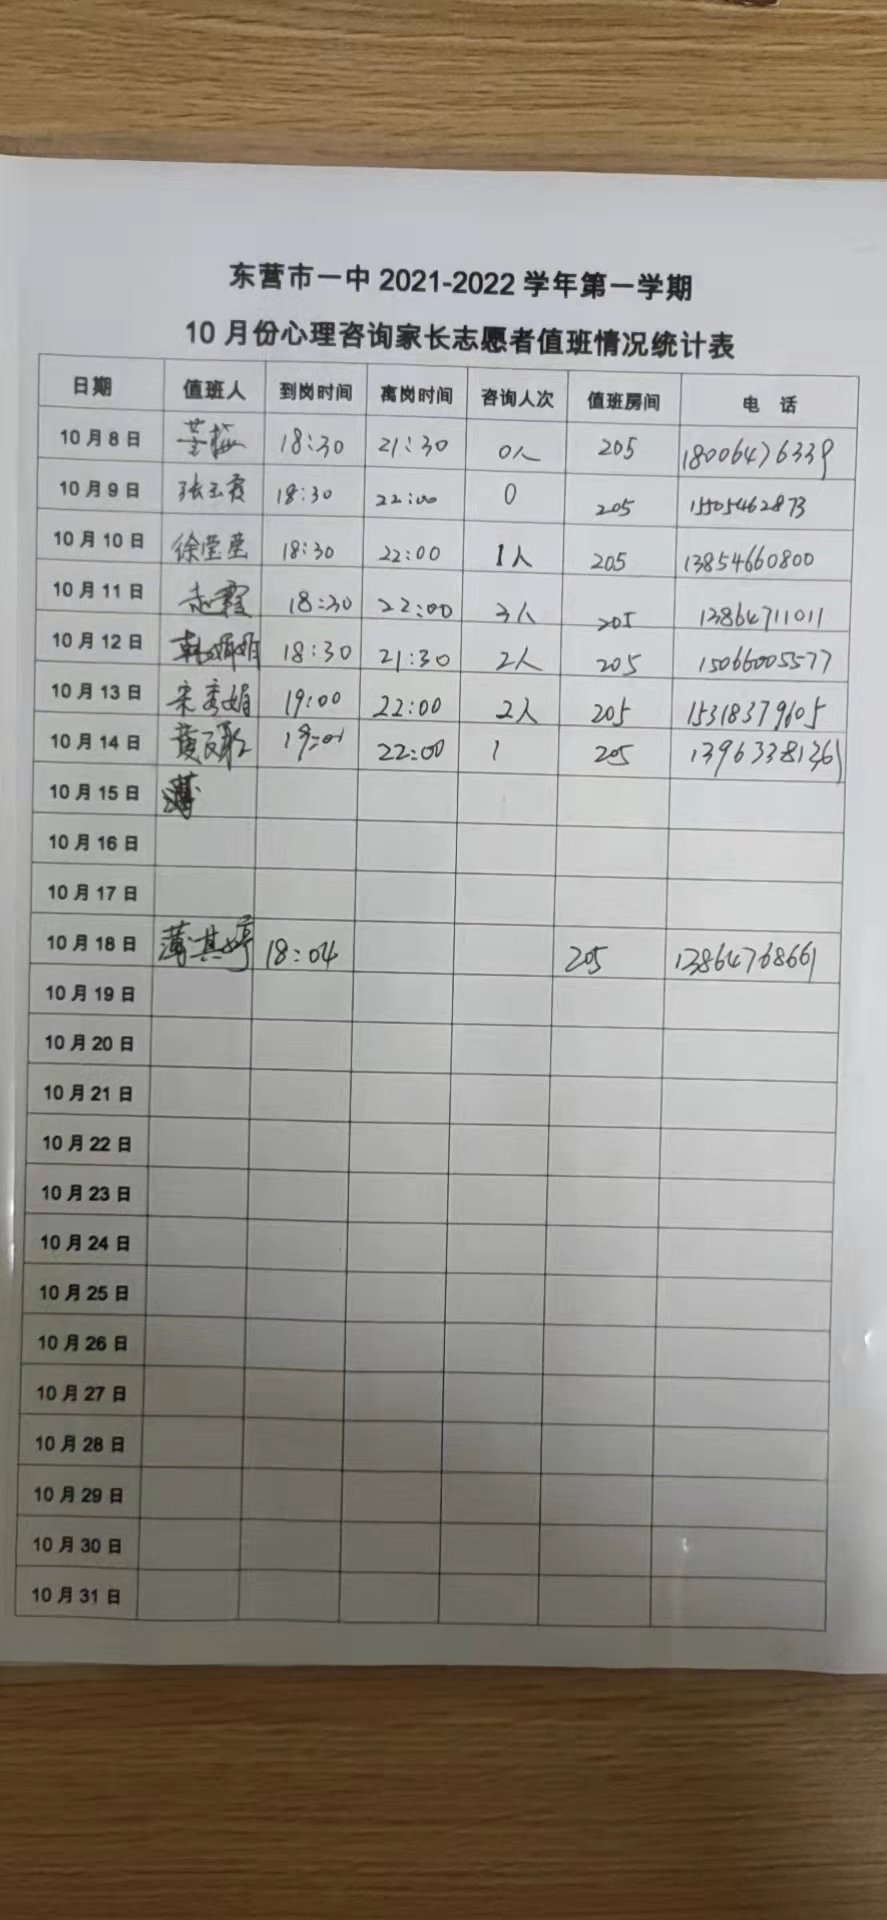 东营市一中 2021-2022 学年第一学期
10 月份心理咨询家长志愿者值班情况统计表
日期 值班人 到岗时间 离岗时间 咨询人次 值班房间 电 话
10 月 8 日 18:30 21:30 0人 205 18006476339
10 月 9 日 张玉霞 18:30 22:00 0 205 15505462873
10 月 10 日 徐莹莹 18:30 22:00 1人 205 13854660800
10 月 11 日 赵霞 18:30 22:00 3人 205 13864711011
10 月 12 日 韩娟娟 18:30 21:30 2人 205 15066005577
10 月 13 日 宋秀娟 19:00 22:00 2人 205 15318379605
10 月 14 日 19:01 22:00 1 205 13963381361
10 月 15 日 薄
10 月 16 日
10 月 17 日
10 月 18 日 薄其婷 18:04 205 13864768661
10 月 19 日
10 月 20 日
10 月 21 日
10 月 22 日
10 月 23 日
10 月 24 日
10 月 25 日
10 月 26 日
10 月 27 日
10 月 28 日
10 月 29 日
10 月 30 日
10 月 31 日